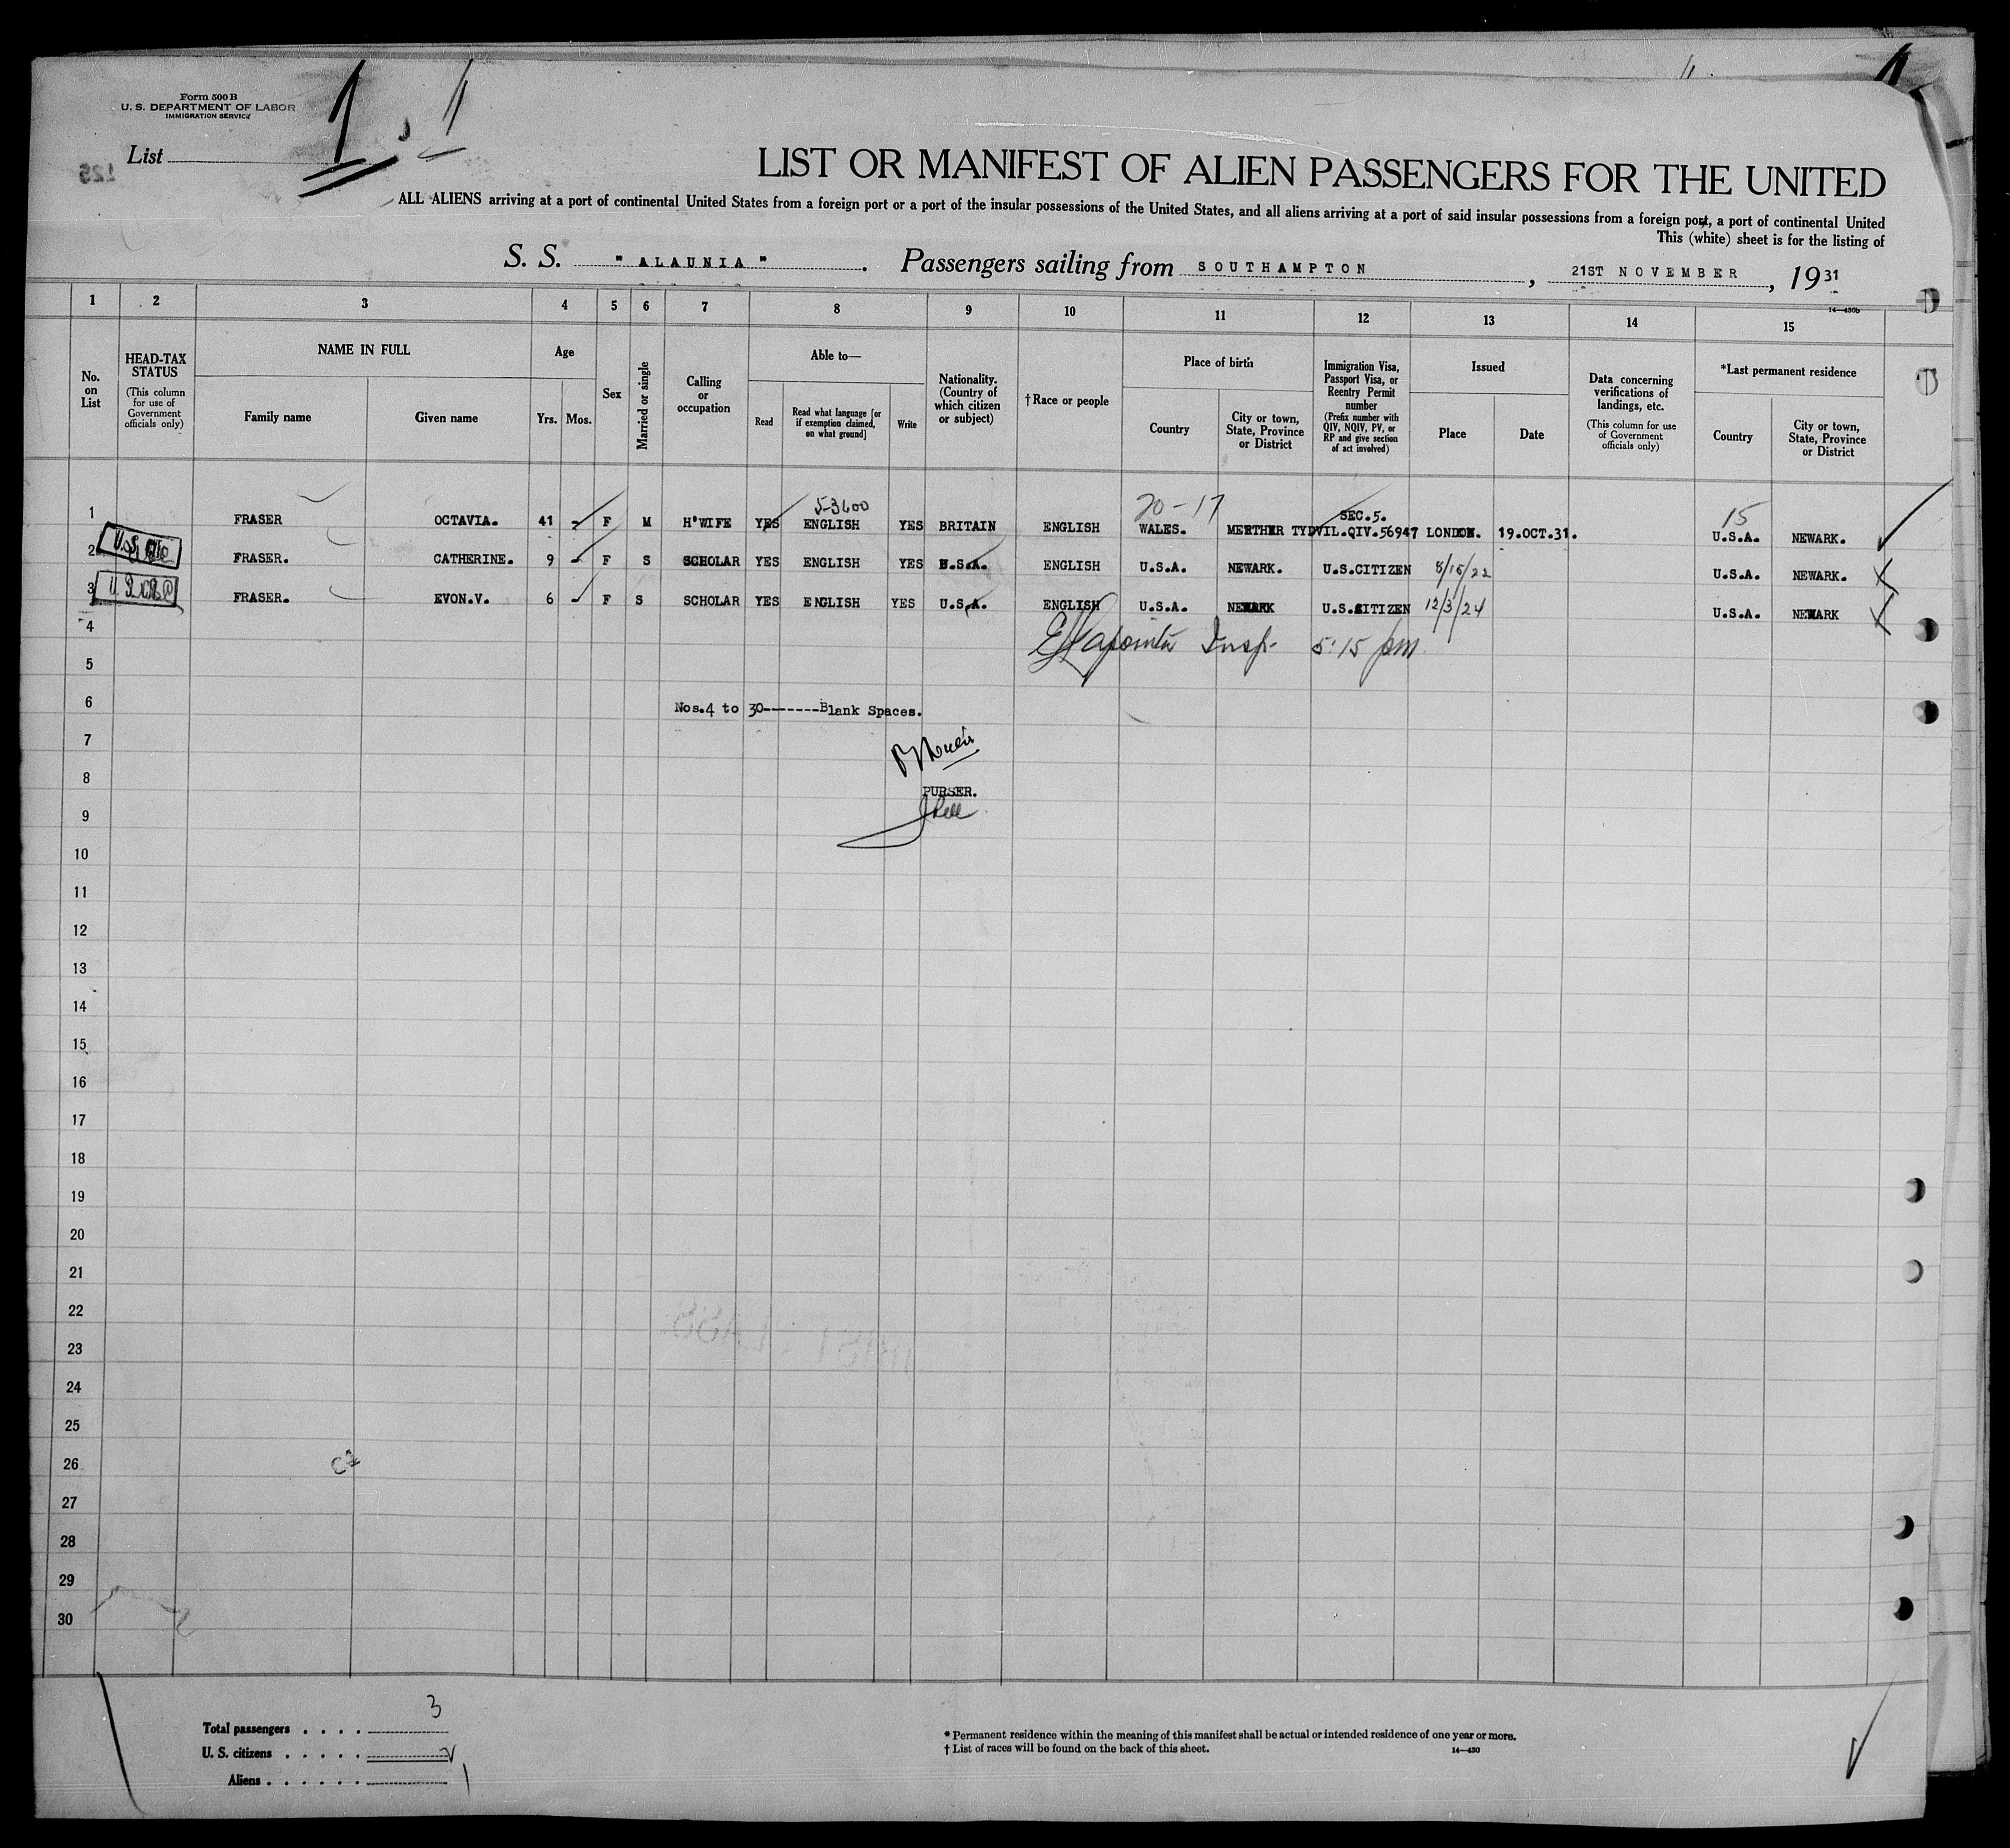 Form 500 B
U. S. DEPARTMENT OF LABOR
IMMIGRATION SERVICE
List 1
125
LIST OR MANIFEST OF ALIEN PASSENGERS FOR THE UNITED
ALL ALIENS arriving at a port of continental United States from a foreign port or a port of the insular possessions of the United States, and all aliens arriving at a port of said insular possessions from a foreign port, a port of continental United
This (white) sheet is for the listing of
S. S. "ALAUNIA". Passengers sailing from SOUTHAMPTON, 21ST NOVEMBER, 1931
14—430b
1 2 3 4 5 6 7 8 9 10 11 12 13 14 15
No. on List
HEAD-TAX STATUS (This column for use of Government officials only)
NAME IN FULL
Family name Given name
Age
Yrs. Mos.
Sex
Married or single
Calling or occupation
Able to—
Read Read what language [or if exemption claimed, on what ground] Write
Nationality. (Country of which citizen or subject)
†Race or people
Place of birth
Country City or town, State, Province or District
Immigration Visa, Passport Visa, or Reentry Permit number (Prefix number with QIV, NQIV, PV, or RP and give section of act involved)
Issued
Place Date
Data concerning verifications of landings, etc. (This column for use of Government officials only)
*Last permanent residence
Country City or town, State, Province or District
5-3600 20-17 SEC.5. 15
1 FRASER OCTAVIA. 41 F M H'WIFE YES ENGLISH YES BRITAIN ENGLISH WALES. MERTHER TYDVIL. QIV.56947 LONDON. 19.OCT.31. U.S.A. NEWARK.
2 FRASER. CATHERINE. 9 F S SCHOLAR YES ENGLISH YES U.S.A. ENGLISH U.S.A. NEWARK. U.S.CITIZEN 8/15/22 U.S.A. NEWARK.
3 FRASER. EVON.V. 6 F S SCHOLAR YES ENGLISH YES U.S.A. ENGLISH U.S.A. NEWARK U.S.CITIZEN 12/3/24 U.S.A. NEWARK
4 Insp. 5:15 pm
5
6 Nos.4 to 30-------Blank Spaces.
7
8
PURSER.
9
10
11
12
13
14
15
16
17
18
19
20
21
22
23
24
25
26
27
28
29
30
Total passengers . . . . 3
U. S. citizens . . . . . 2
Aliens . . . . . . 1
* Permanent residence within the meaning of this manifest shall be actual or intended residence of one year or more.
† List of races will be found on the back of this sheet. 14—430